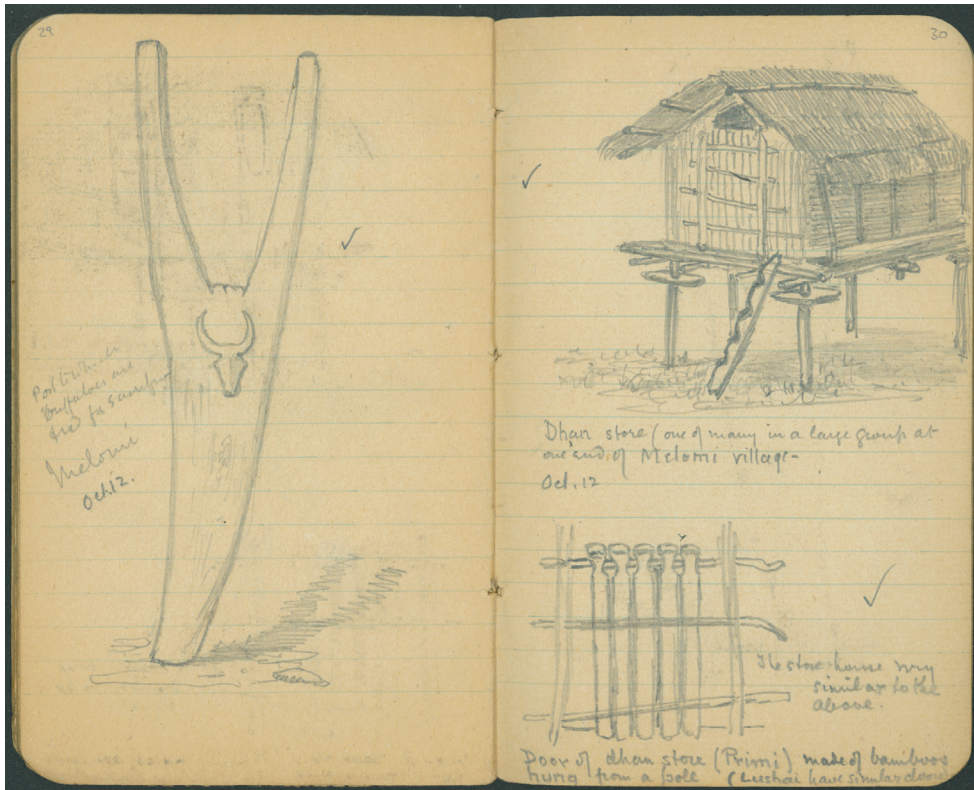 29
Post to which
buffaloes are
tied for sacrifice
Melomi
Oct.12.
30
Dhan store (one of many in a large group at
one end of Melomi village-
Oct. 12
The store-house very
similar to the
above.
Door of dhan store (Primi) made of bamboos
hung from a pole (Lushai have similar doors)